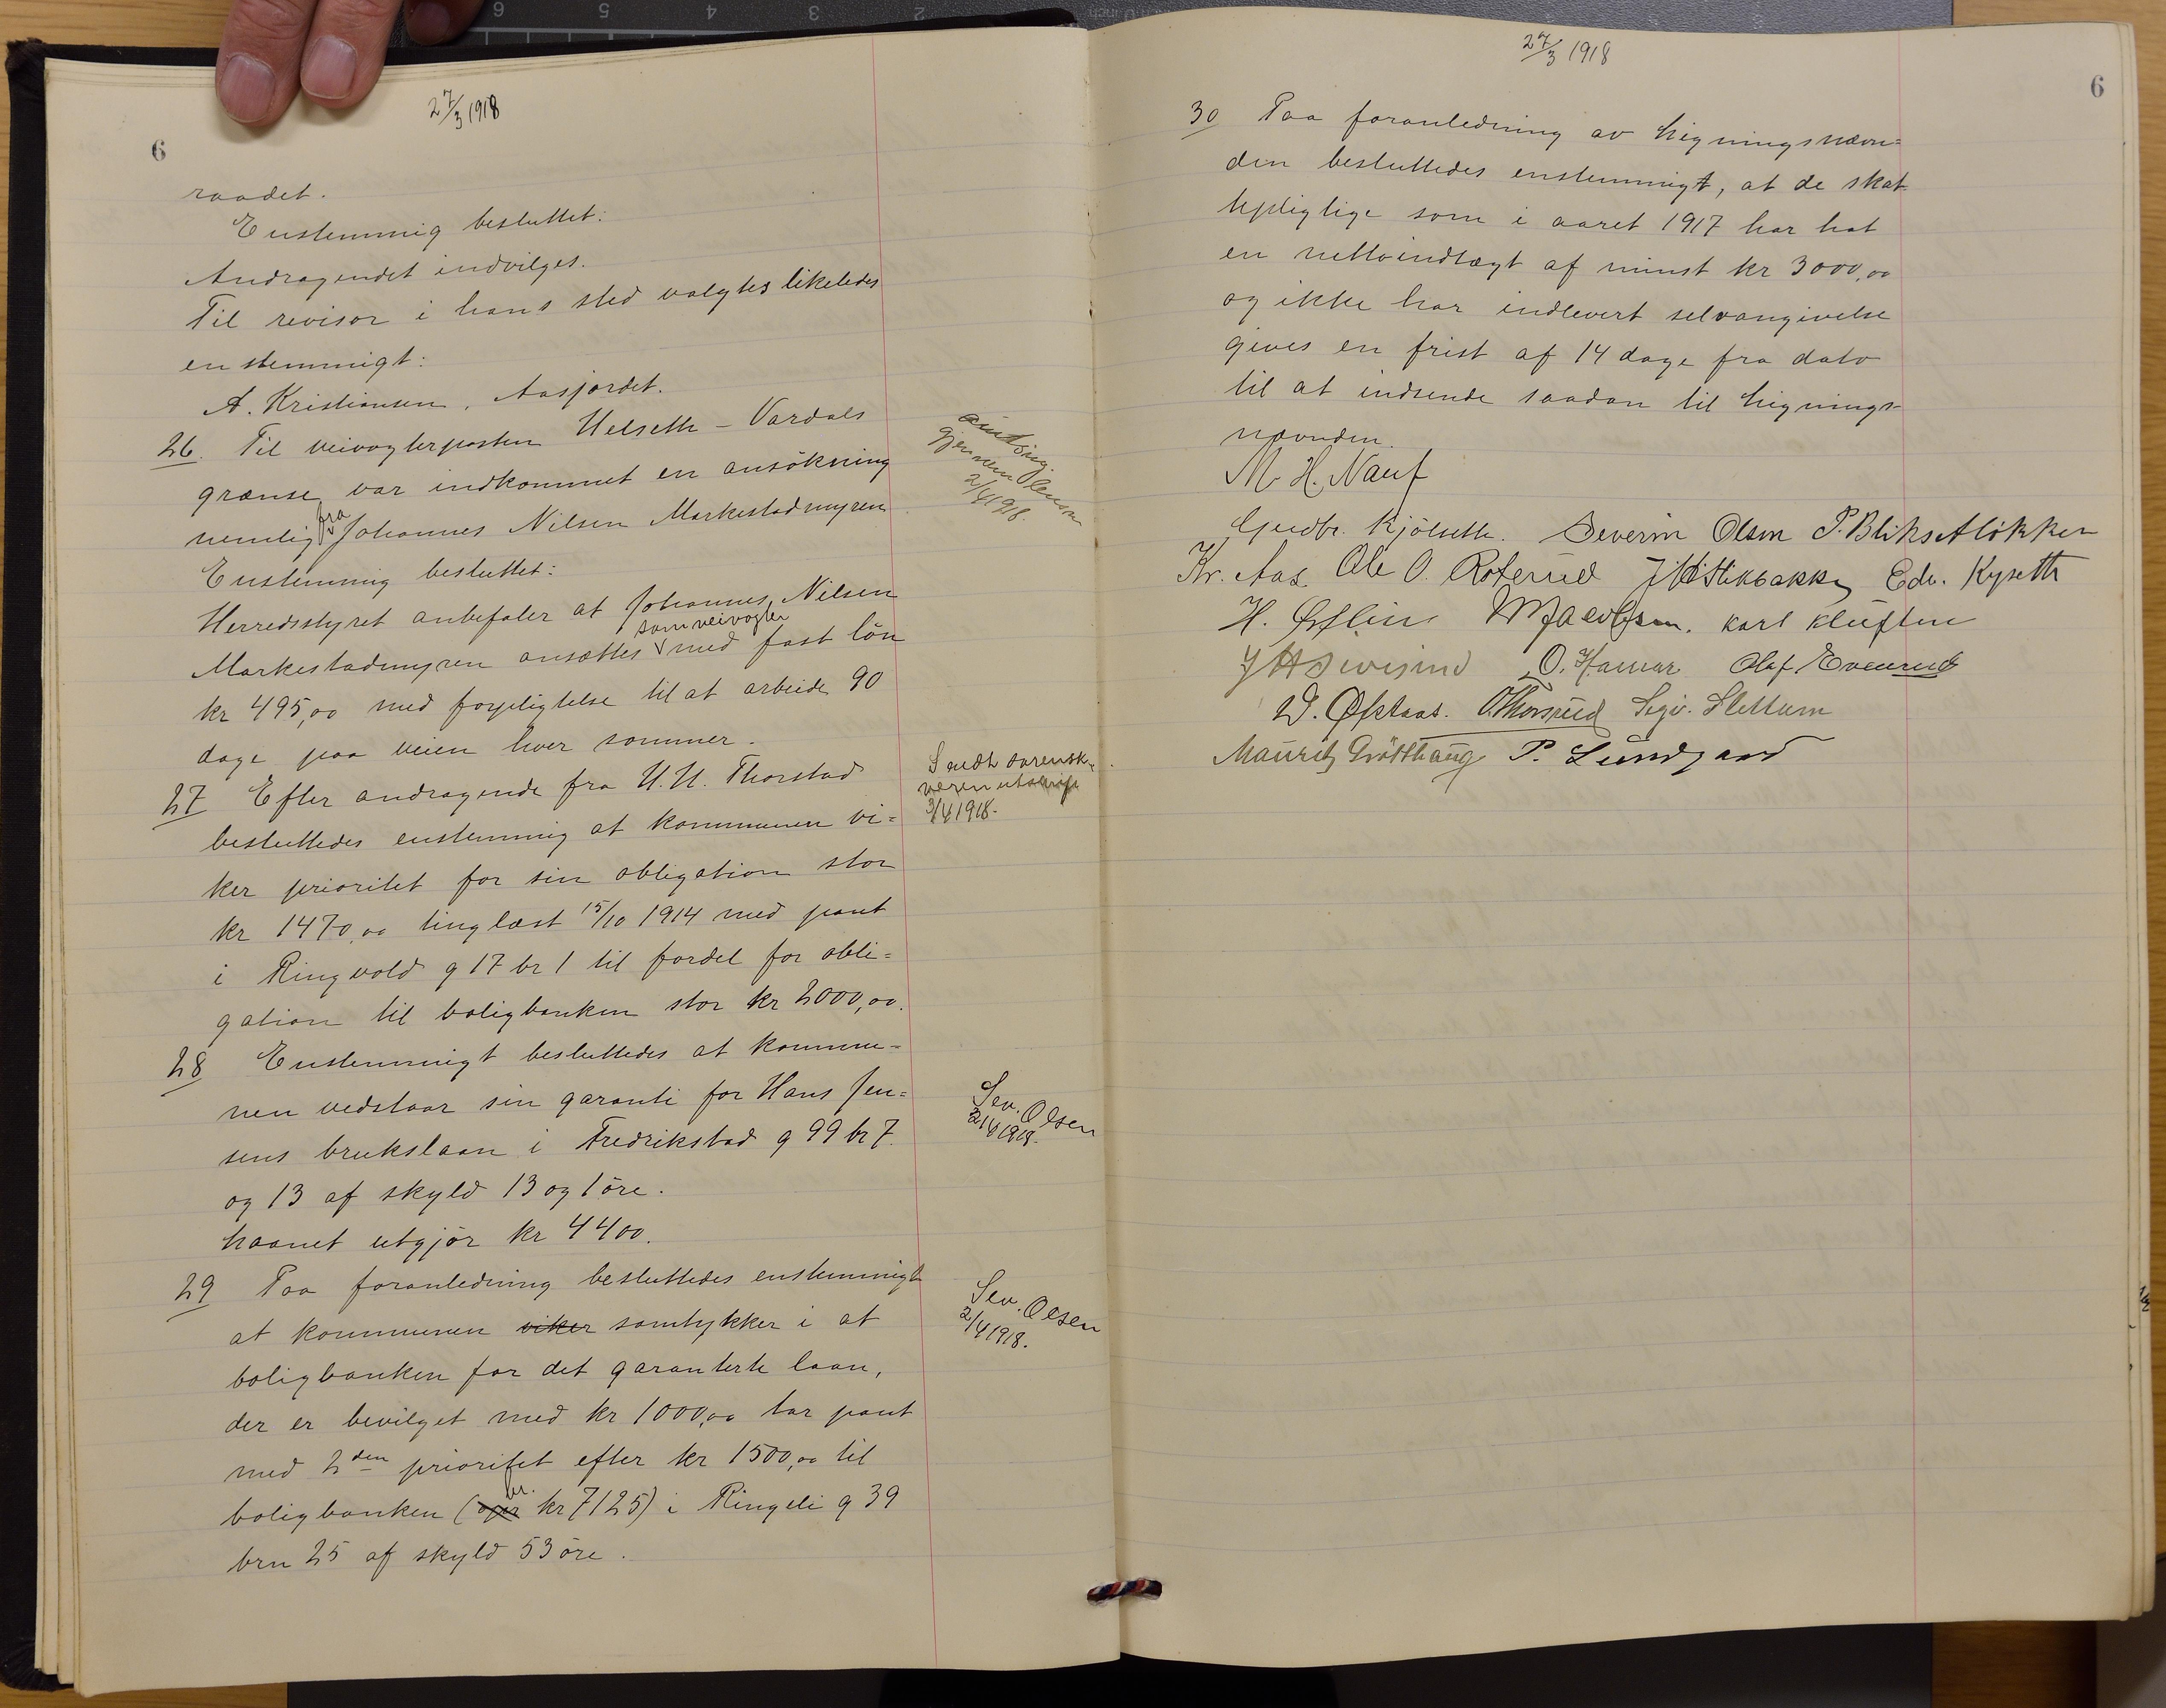 27/3 1918
6
raadet.
Enstemmig besluttet:
Andragendet indvilges.
Til revisor i hans sted valgtes likeledes
enstemmigt:
A. Kristiansen, Aasjordet.
26. Til veivogterposten Helseth - Vardals
grænse var indkommet en ansökning
nemlig fra Johannes Nilsen Markestadmyren
Enstemmig besluttet:
Herredsstyret anbefaler at Johannes Nilsen
Markestadmyren ansættes som veivogter med fast lön
kr 495,00 med forpligtelse til at arbeide 90
dage paa veien hver sommer.
27 Efter andragende fra H. H. Thorstad
besluttedes enstemmig at kommunen vi=
ker prioritet for sin obligation stor
kr 1470,00 tinglæst 15/10 1914 med pant
i Ringvold g 17 br 1 til fordel for obli=
gation til boligbanken stor kr 2000,00.
28 Enstemmigt besluttedes at kommu=
nen vedstaar sin garanti for Hans Jen=
sens brukslaan i Fredrikstad g 99 br 7
og 13 af skyld 13 og 1 öre.
Laanet utgjör kr 4400.
29 Paa foranledning besluttedes enstemmigt
at kommunen viker samtykker i at
boligbanken for det garanterte laan,
der er bevilget med kr 1000,00 tar pant
med 2den prioritet efter kr 1500,00 til
boligbanken (br. kr 7125) i Ringeli g 39
brn 25 af skyld 53 öre.
gjennem
2/4 1918.
Sendt
3/4 1918.
Sev. Olsen
2/4 1918.
Sev. Olsen
2/4 1918.
27/3 1918
6
30 Paa foranledning av Ligningsnævn=
den besluttedes enstemmigt, at de skat
tepligtige som i aaret 1917 har hat
en nettoindtægt af minst kr 3000,00
og ikke har indlevert selvangivelse
gives en frist af 14 dage fra dato
til at indsende saadan til Lignings-
nævnden.
M. H. Nauf
Gudbr. Kjölseth. Severin Olsen P. Blikset lökken
Kr. Aas. Ole O. Roterud Stikbakke Edv. Kyseth
H. Jacobsen. Karl Kluften
O. Hamar Olaf Evenrud
O. Thorsrud Sigv. Slettum
Mauritz Gröthaug P. Lundgaard